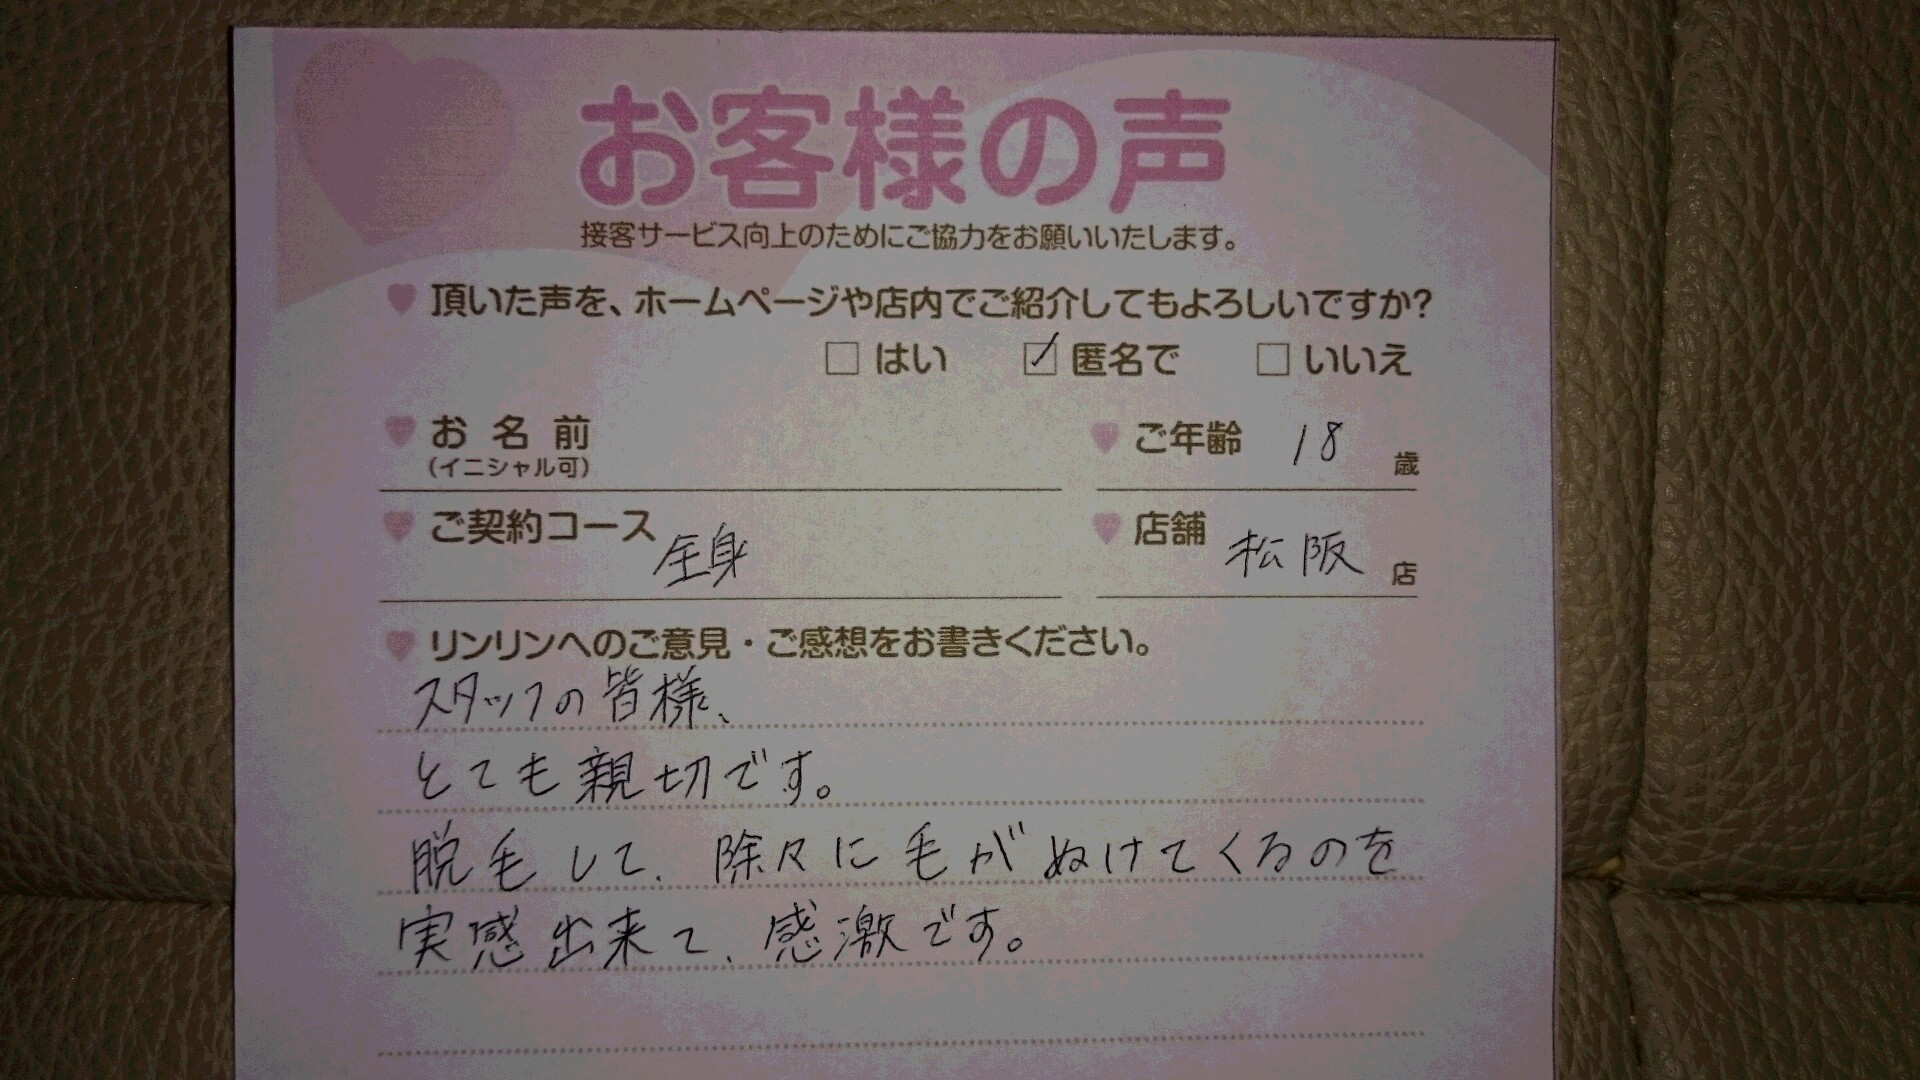 お客様の声
接客サービス向上のためにご協力をお願いいたします。
頂いた声を、ホームページや店内でご紹介してもよろしいですか?
□ はい ☑ 匿名で □ いいえ
お名前 ご年齢 18 歳
(イニシャル可)
ご契約コース 全身 店舗 松阪 店
リンリンへのご意見・ご感想をお書きください。
スタッフの皆様、
とても親切です。
脱毛して、除々に毛がぬけてくるのを
実感出来て、感激です。